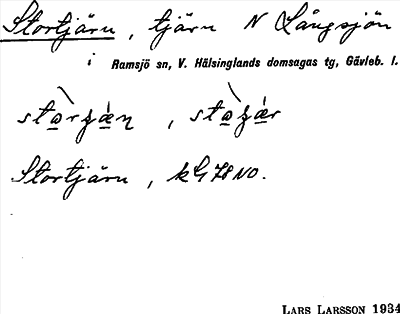 Stortjärn, tjärn N Långsjön
i Ramsjö sn, V. Hälsinglands domsagas tg, Gävleb. l.
Stortjärn, kG 78 NO.
LARS LARSSON 1934